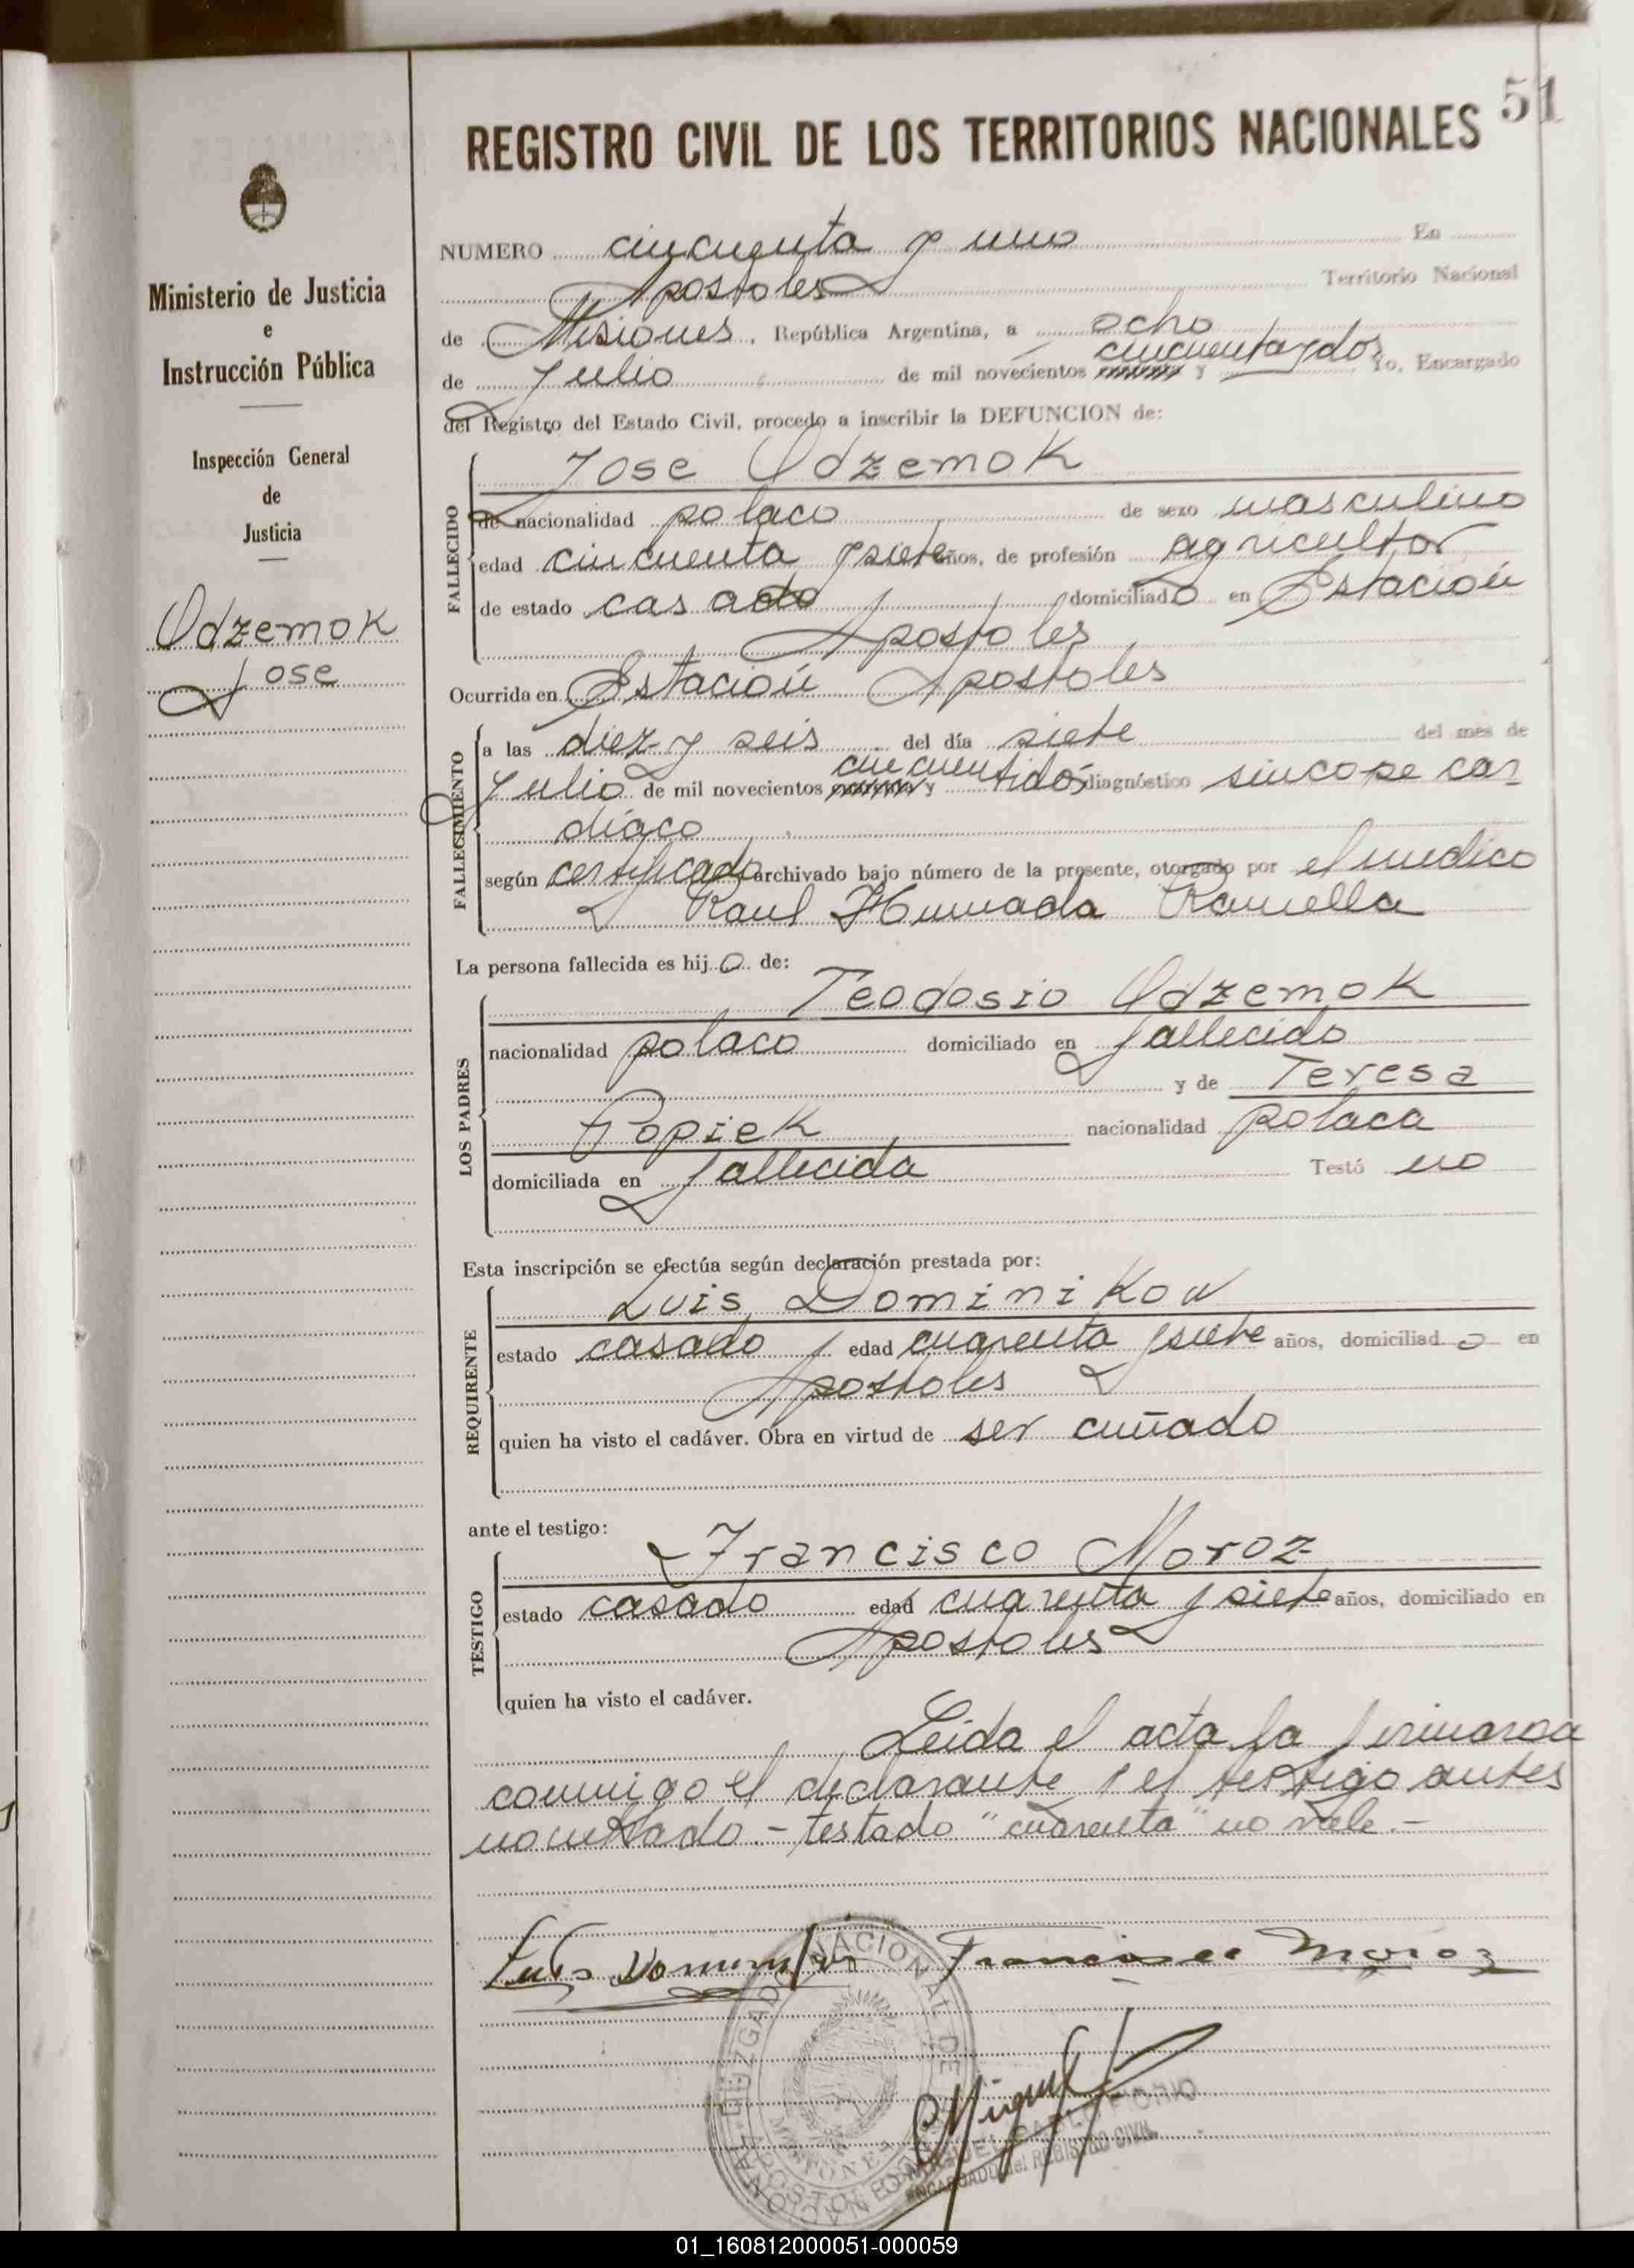 51
REGISTRO CIVIL DE LOS TERRITORIOS NACIONALES
Ministerio de Justicia
e
Instrucción Pública
Inspección General
de
Justicia
Odzemok
Jose
NUMERO cincuenta y uno En
Apostoles Territorio Nacional
de Misiones, República Argentina, a ocho
de Julio de mil novecientos cuarenta y cincuenta y dos Yo, Encargado
del Registro del Estado Civil, procedo a inscribir la DEFUNCION de:
FALLECIDO
Jose Odzemok
de nacionalidad polaco de sexo masculino
edad cincuenta y siete años, de profesión agricultor
de estado casado domiciliado en Estación
Apostoles
Ocurrida en Estación Apostoles
FALLECIMIENTO
a las diez y seis del día siete del mes de
Julio de mil novecientos cuarenta y cincuentidós diagnóstico sincope car-
díaco
según certificado archivado bajo número de la presente, otorgado por el medico
Raul Humada Ramella
La persona fallecida es hijo de:
LOS PADRES
Teodosio Odzemok
nacionalidad polaco domiciliado en fallecido
y de Teresa
Popiek nacionalidad polaca
domiciliada en fallecida Testó no
Esta inscripción se efectúa según declaración prestada por:
REQUIRENTE
Luis Dominikow
estado casado edad cuarenta y siete años, domiciliado en
Apostoles
quien ha visto el cadáver. Obra en virtud de ser cuñado
ante el testigo:
TESTIGO
Francisco Moroz
estado casado edad cuarenta y siete años, domiciliado en
Apostoles
quien ha visto el cadáver.
Leida el acta la firmaron
conmigo el declarante y el testigo antes
nombrado.- testado "cuarenta" no vale.-
Luis Dominikow Francisco Moroz
Miguel
JUZGADO NACIONAL DE
MISIONES
APOSTOLES
ENCARGADO del REGISTRO CIVIL
01_160812000051-000059